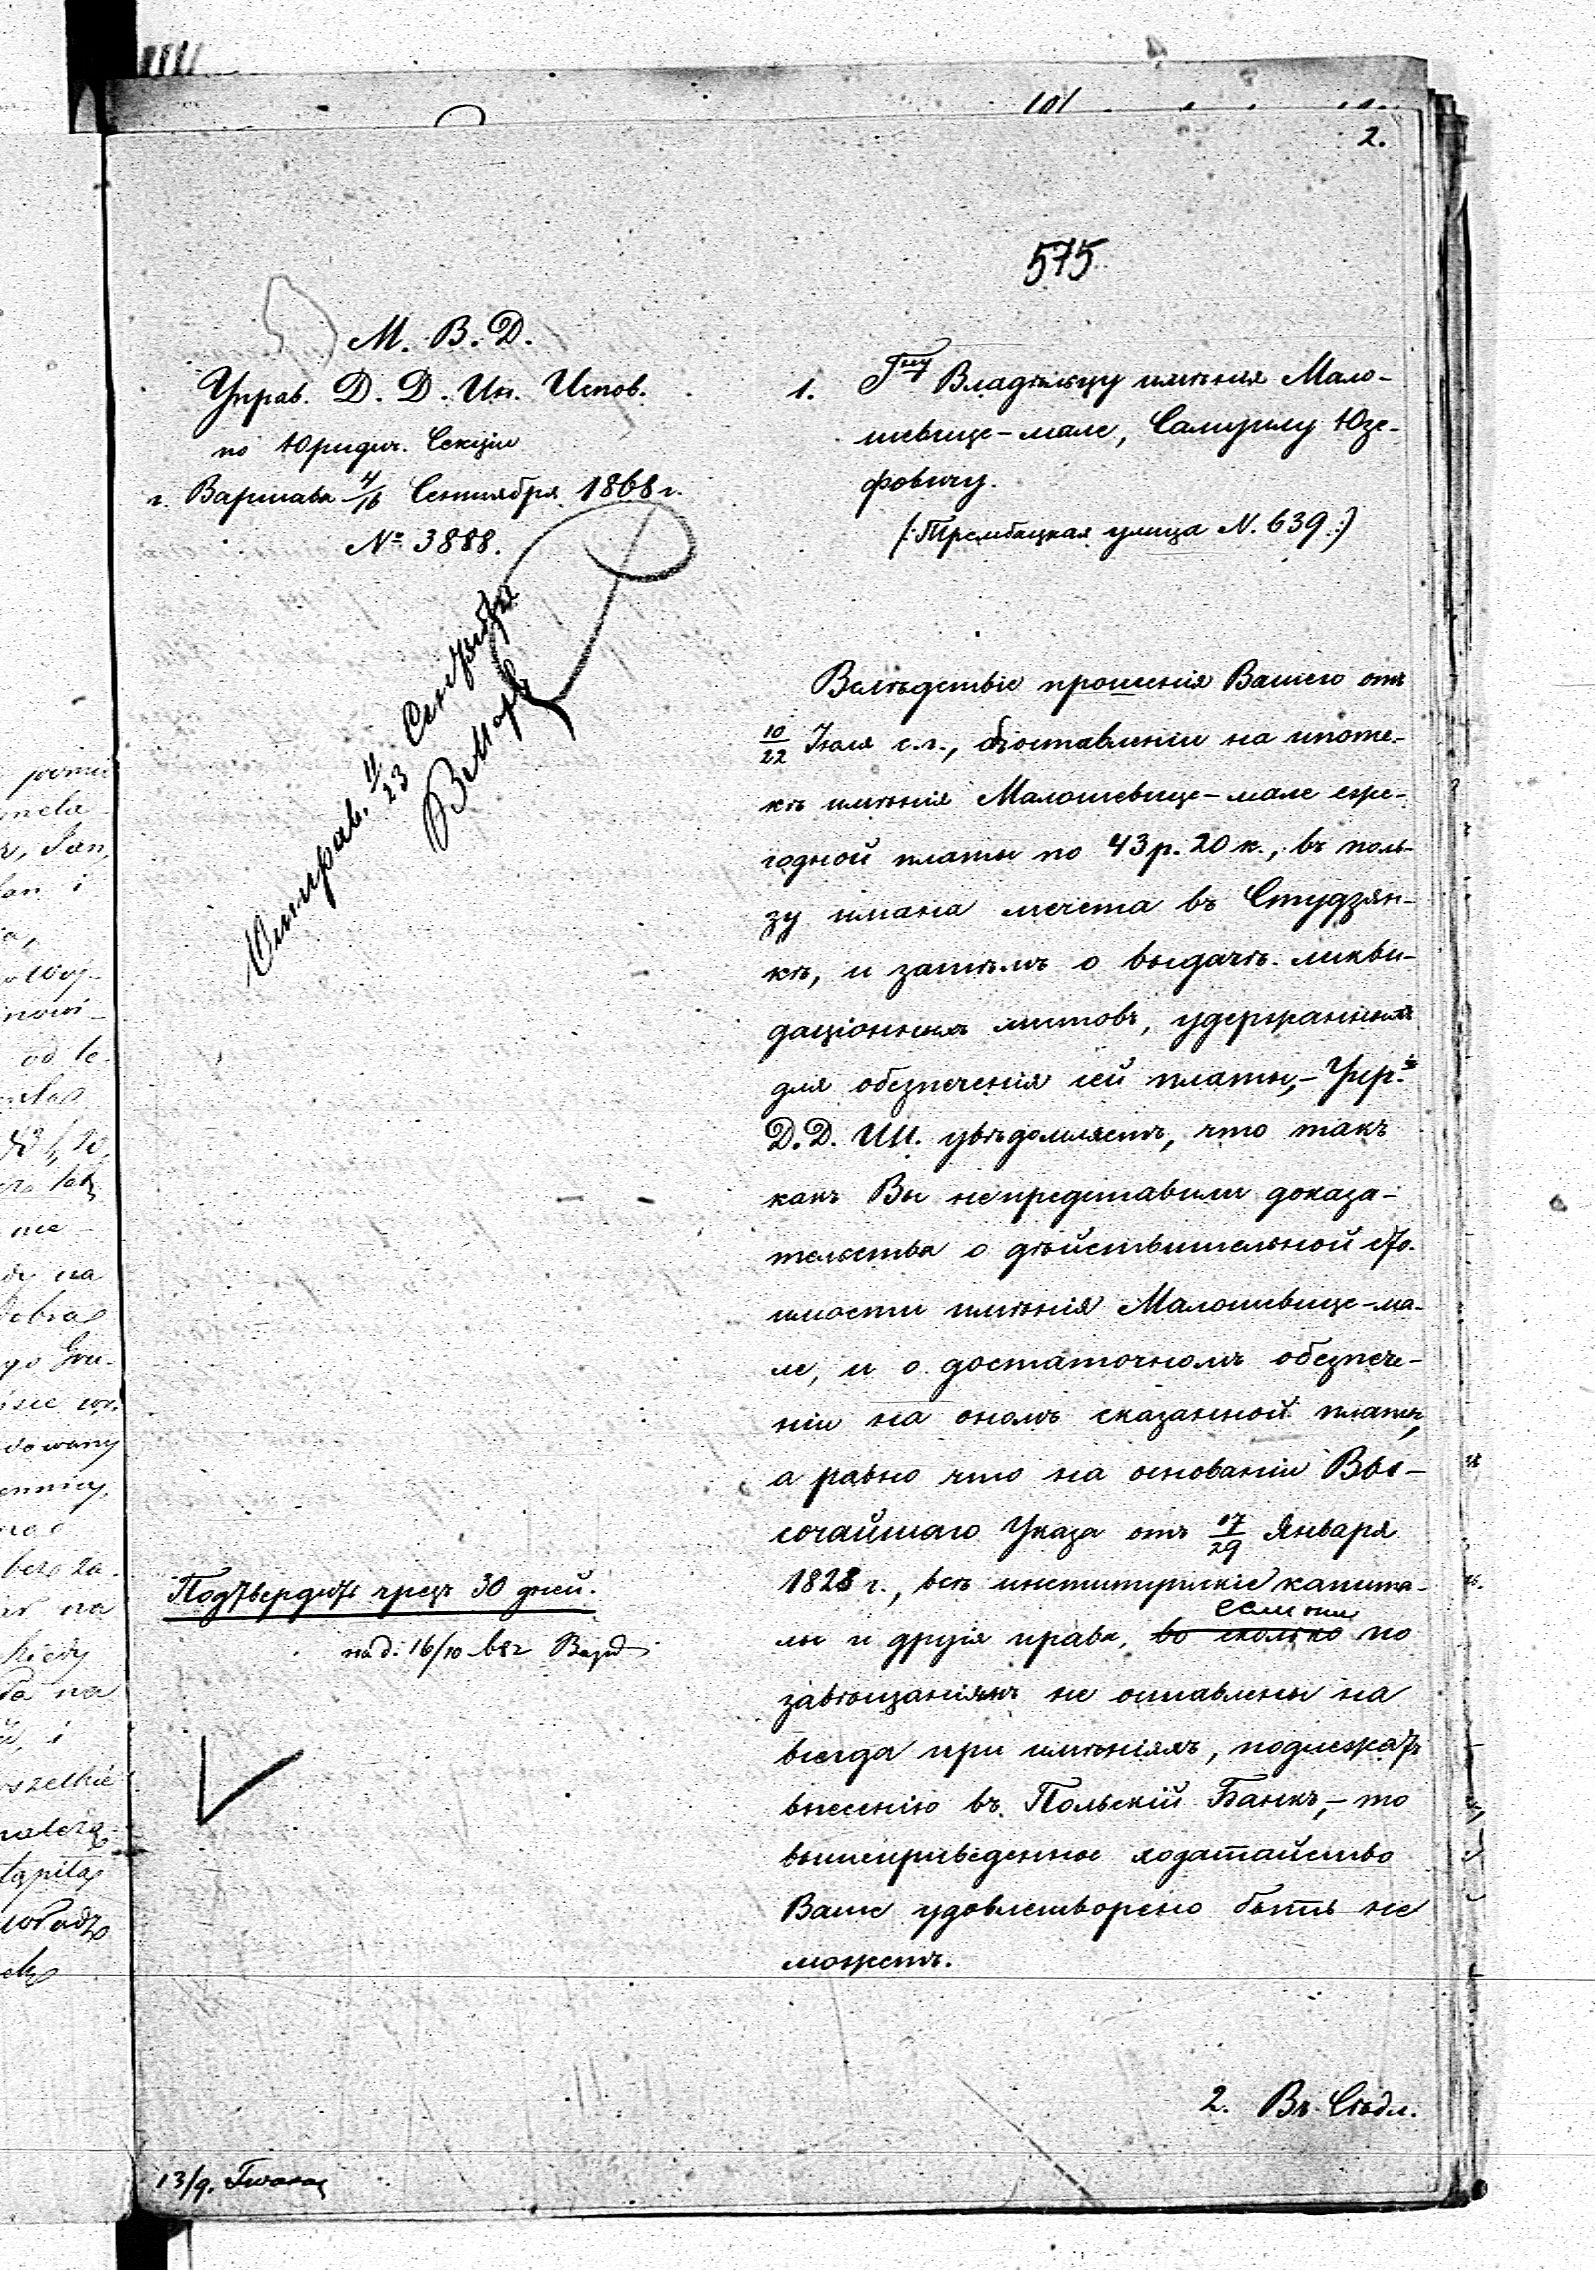 101
2.
575
М. В. Д.
Управ. Д. Д. Ин. Испов.
по Юридич. Секціи
г. Варшава 4/16 Сентября 1868 г.
№ 3888.
Отправ. 11/23 Сентября
1. Гну Владѣльцу имѣнія Мало-
шевице-мале, Самуилу Юзе-
фовичу.
(: Трембацкая улица N. 639 :)
Вслѣдствіе прошенія Вашего отъ
10/22 Іюля с. г., объ оставленіи на ипоте-
кѣ имѣнія Малошевице-мале еже-
годной платы по 43 р. 20 к., въ поль-
зу имана мечета въ Студзян-
кѣ, и затѣмъ о выдачѣ ликви-
даціонныхъ листовъ, удержанныхъ
для обезпеченія сей платы,- Упр.
Д. Д. ИИ. увѣдомляетъ, что такъ
какъ Вы непредставили доказа-
тельства о дѣйствительной сто-
имости имѣнія Малошевице-ма-
ле, и о достаточномъ обезпече-
ніи на ономъ сказанной платы,
а равно что на основаніи Вы-
сочайшаго Указа отъ 17/29 Января
1828 г., всѣ институтскіе капита-
если они
лы и другія права, во сколько по
завѣщаніямъ не оставлены на
всегда при имѣніяхъ, подлежатъ
внесенію въ Польскій Банкъ,- то
вышеприведенное ходатайство
Ваше удовлетворено быть не
можетъ.
Подтвердить чрезъ 30 дней.
16/10
2. Въ Сѣдл.
13/9.